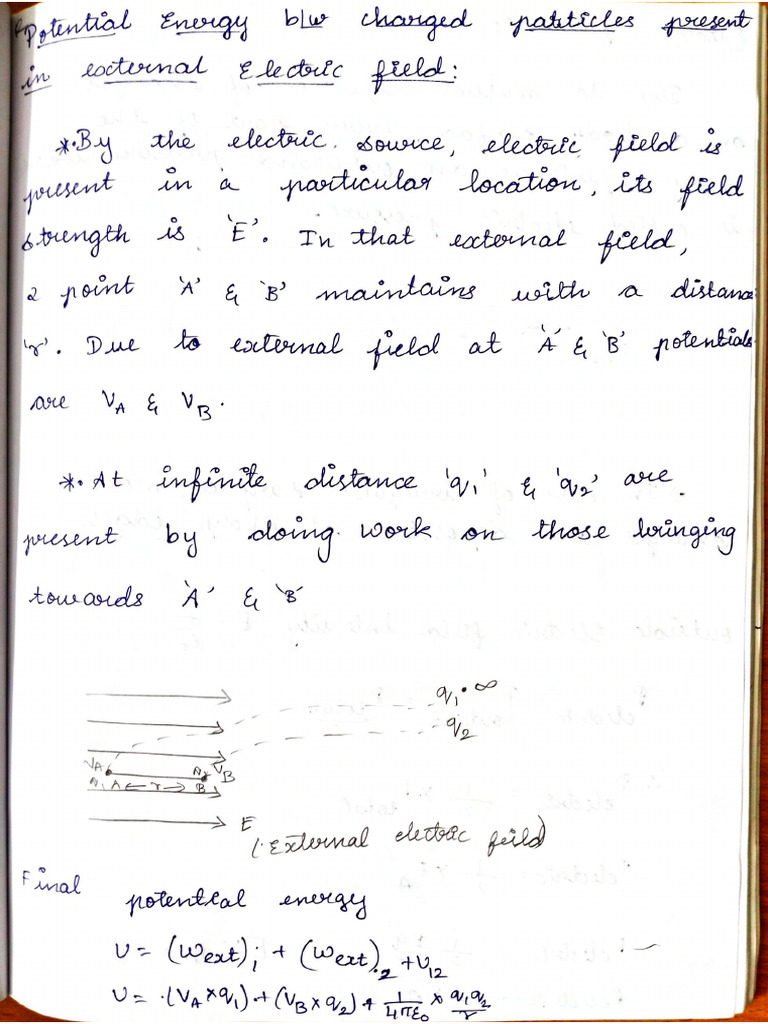 Potential Energy b/w charged particles present
in external Electric field:
*. By the electric source, electric field is
present in a particular location, its field
strength is 'E'. In that external field,
2 point 'A' & 'B' maintains with a distance
'r'. Due to external field at 'A' & 'B' potentials
are VA & VB.
*. At infinite distance 'q1' & 'q2' are
present by doing work on those bringing
towards 'A' & 'B'
q1 ∞
q2
VA VB
A ← r → B
E
(External electric feild)
Final
potential energy
U = (Wext)1 + (Wext)2 + U12
U = (VA × q1) + (VB × q2) + 1/4πε0 × q1q2/r